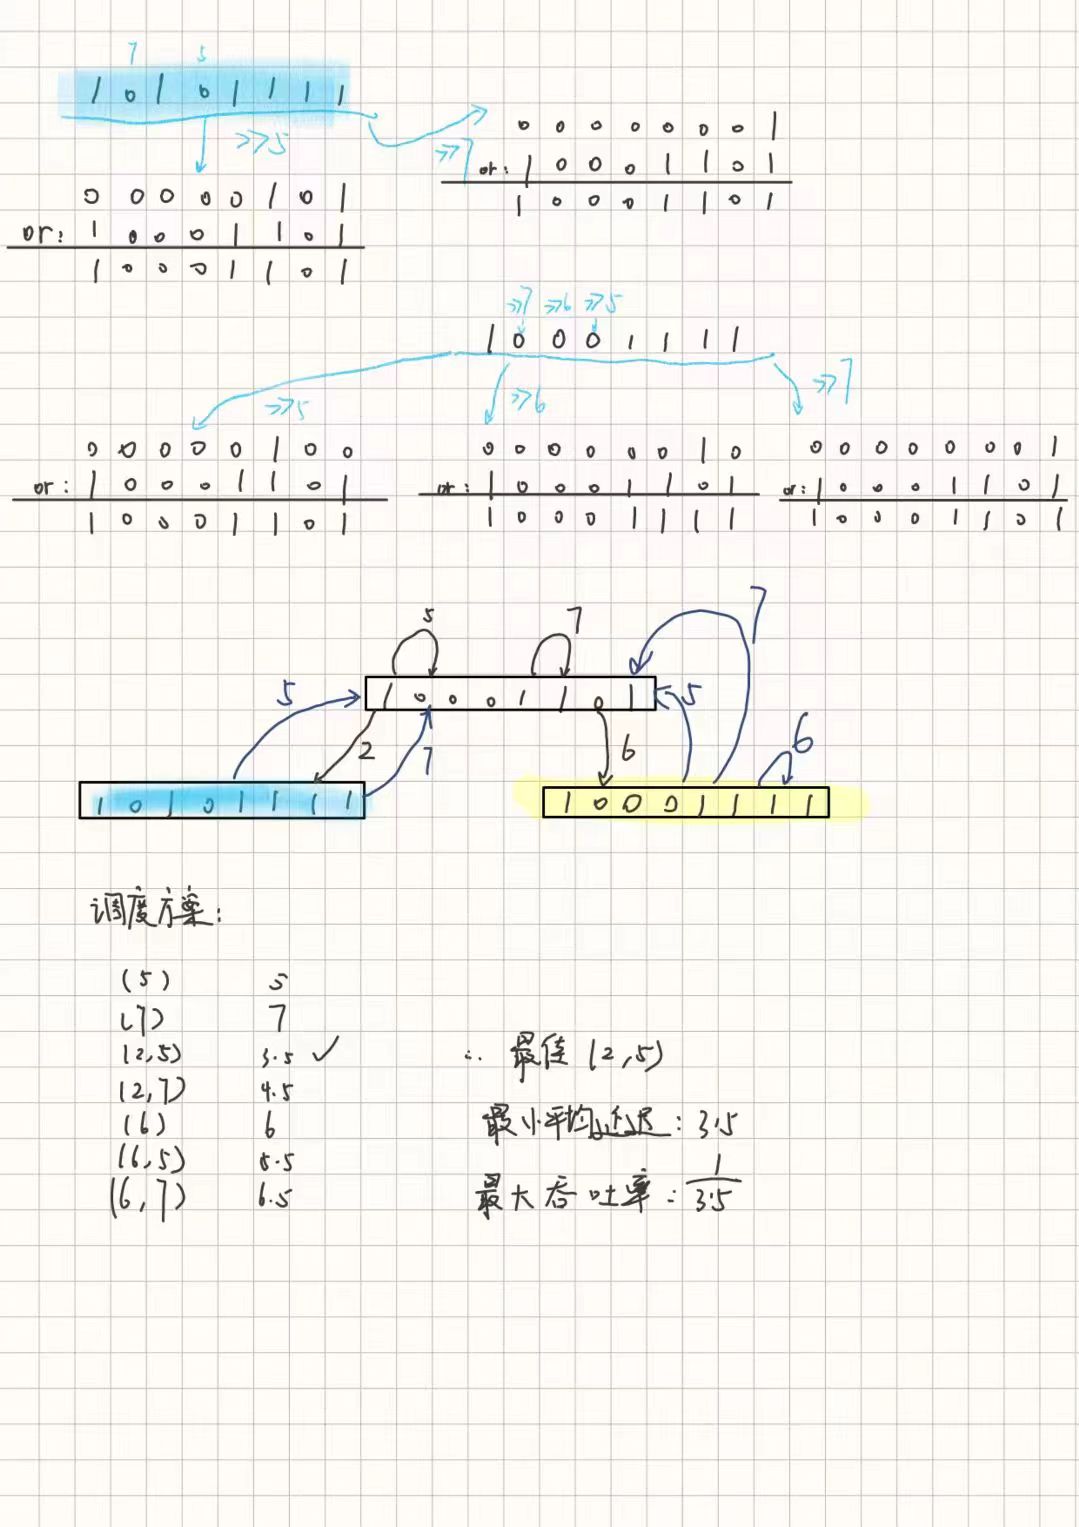 7 5
1 0 1 0 1 1 1 1
>>5
0 0 0 0 0 1 0 1
or: 1 0 0 0 1 1 0 1
1 0 0 0 1 1 0 1
>>7
0 0 0 0 0 0 0 1
or: 1 0 0 0 1 1 0 1
1 0 0 0 1 1 0 1
>>7 >>6 >>5
1 0 0 0 1 1 1 1
>>5 >>6 >>7
0 0 0 0 0 1 0 0
or: 1 0 0 0 1 1 0 1
1 0 0 0 1 1 0 1
0 0 0 0 0 0 1 0
or: 1 0 0 0 1 1 0 1
1 0 0 0 1 1 1 1
0 0 0 0 0 0 0 1
or: 1 0 0 0 1 1 0 1
1 0 0 0 1 1 0 1
5 7 7
1 0 0 0 1 1 0 1
5 2 7 6 5 6
1 0 1 0 1 1 1 1
1 0 0 0 1 1 1 1
调度方案:
(5) 5
(7) 7
(2,5) 3.5 ✓
(2,7) 4.5
(6) 6
(6,5) 5.5
(6,7) 6.5
∴ 最佳 (2,5)
最小平均延迟: 3.5
最大吞吐率: 1/3.5